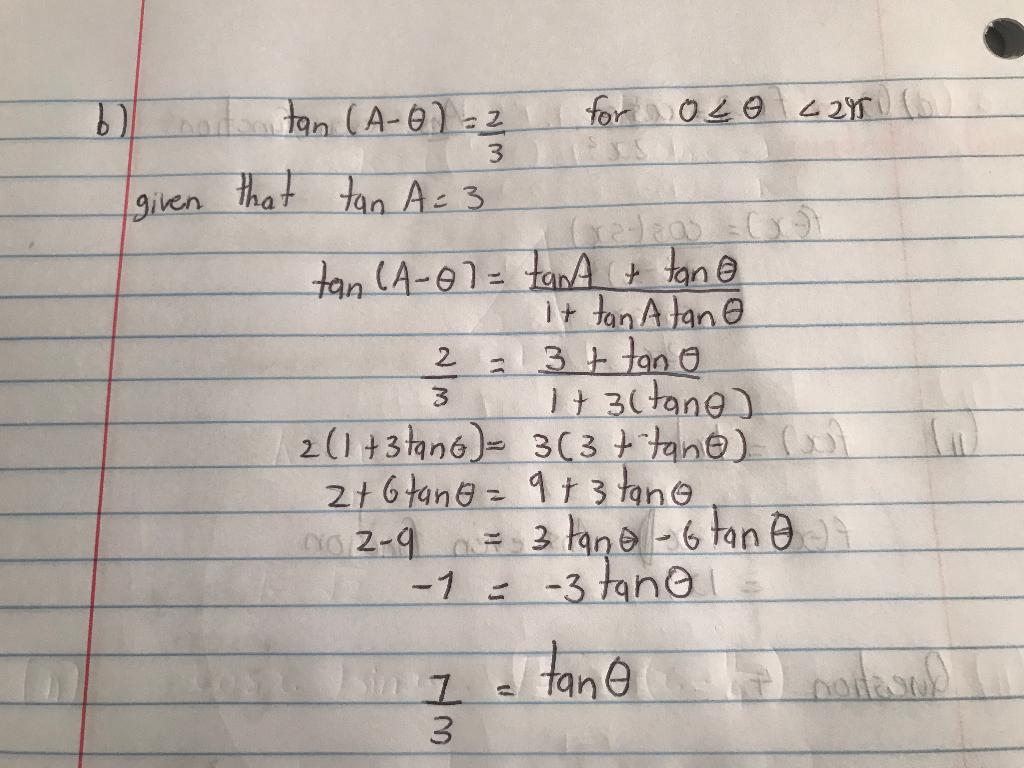 b) tan (A-θ) = 2/3 for 0 ≤ θ < 2π
given that tan A = 3
tan (A-θ) = (tanA + tanθ)/(1 + tanA tanθ)
2/3 = (3 + tanθ)/(1 + 3(tanθ))
2(1+3tanθ) = 3(3 + tanθ)
2 + 6tanθ = 9 + 3tanθ
2-9 = 3tanθ - 6tanθ
-7 = -3tanθ
7/3 = tanθ